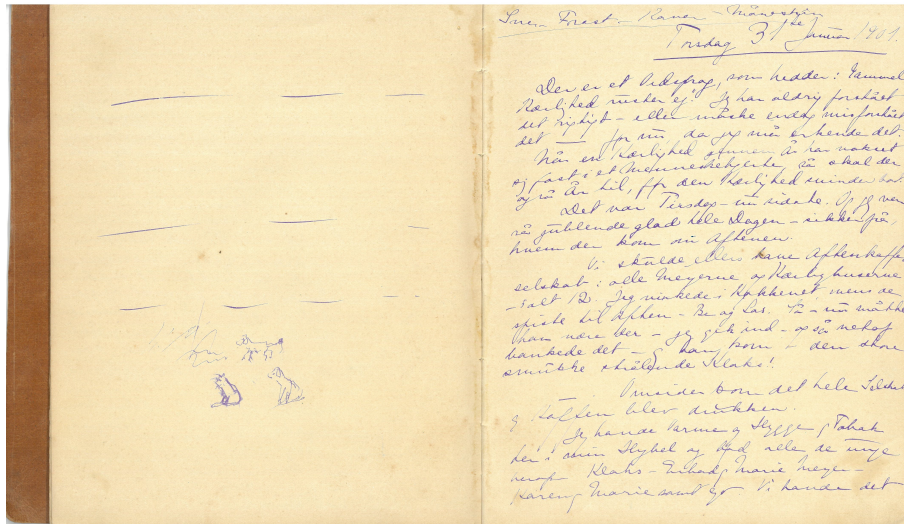 Sne - Frost - Kaner - Måneskin
Torsdag 31te Januar 1901.
Der er et Ordsprog, som hedder: Gammel
Kærlighed ruster ej! Jeg har aldrig forstået
det rigtigt - eller måske endog misforstået
det — før nu, da jeg må erkende det.
Når en Kærlighed gennem År har vokset
sig fast i et Menneskehjerte så skal der
også År til, før den Kærlighed svinder bort.
Det var Tirsdag - nu sidste. Og jeg var
så jublende glad hele Dagen - sikken på,
hvem der kom om Aftenen.
Vi skulde ellers have Aftenkaffe
selskab: alle Meyerne og Kærbyhuserne
- ialt 12. Jeg virkede i Køkkenet mens de
spiste til Aften - Be og Las. Så - nu måtte
han være der - jeg gik ind - også netop
bankede det - og han kom - den store
smukke strålende Klaks!
Omsider kom det hele Selskab
og Kaffen blev drukken.
Jeg havde Varme og Hygge og Tobak
her i min Hybel og bad alle de unge
herop Klaks - Enhad, Marie Meyer -
Karen, Marie samt jeg Vi havde det